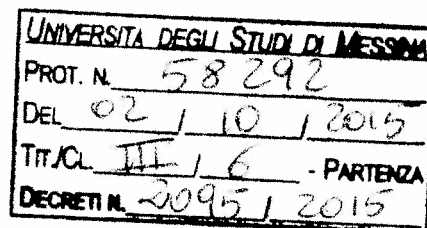 UNIVERSITA DEGLI STUDI DI MESSINA
PROT. N. 58292
DEL 02 / 10 / 2015
TIT./CL. III / 6 - PARTENZA
DECRETI N. 2095 / 2015